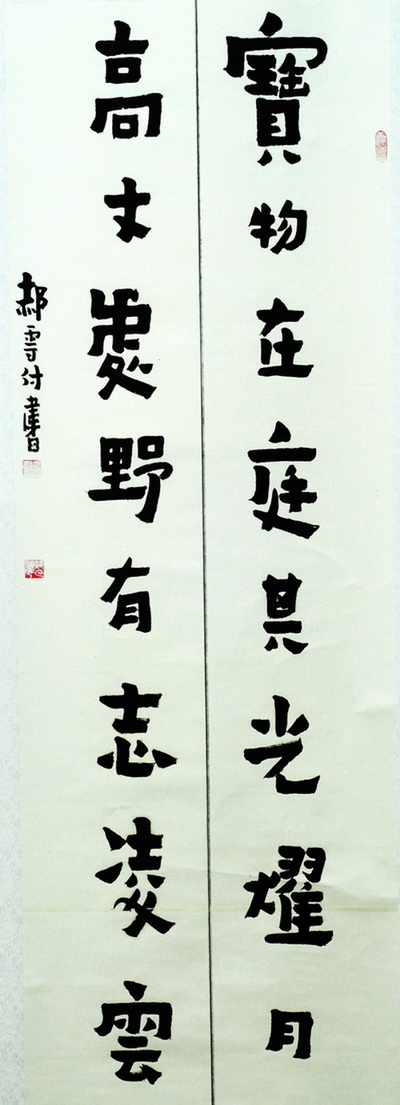 寶物在庭其光耀月
高丈處野有志凌雲
郝雪付書